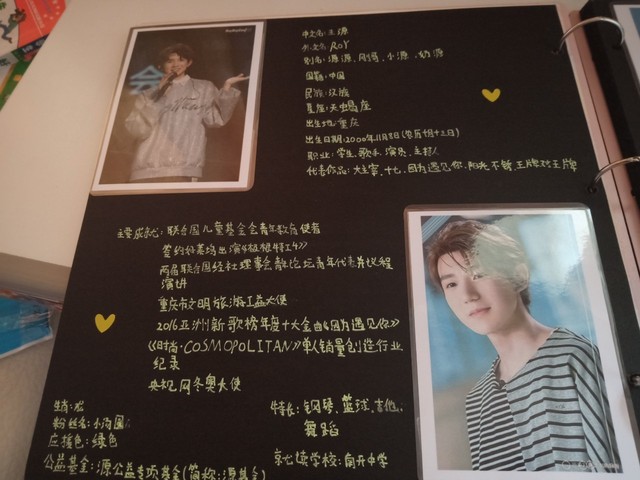 中文名：王源
外文名：ROY
别名：源源、小源、奶源
国籍：中国
民族：汉族
星座：天蝎座
出生地：重庆
出生日期：2000年11月8日(农历十月十三日)
职业：学生、歌手、演员、主持人
代表作品：大主宰、十七、因为遇见你、阳光不锈、王牌对王牌
主要成就：联合国儿童基金会青年教育使者
签约好莱坞出演《极限特工4》
两届联合国经社理事会青年论坛青年代表并议程
演讲
重庆市文明旅游公益大使
2016亚洲新歌榜年度十大金曲《因为遇见你》
《时尚·COSMOPOLITAN》单人销量创造行业
纪录
央视网冬奥大使
生肖：龙
粉丝名：小汤圆
应援色：绿色
公益基金：源公益专项基金(简称：源基金)
特长：钢琴、篮球、吉他、
舞蹈
就读学校：南开中学